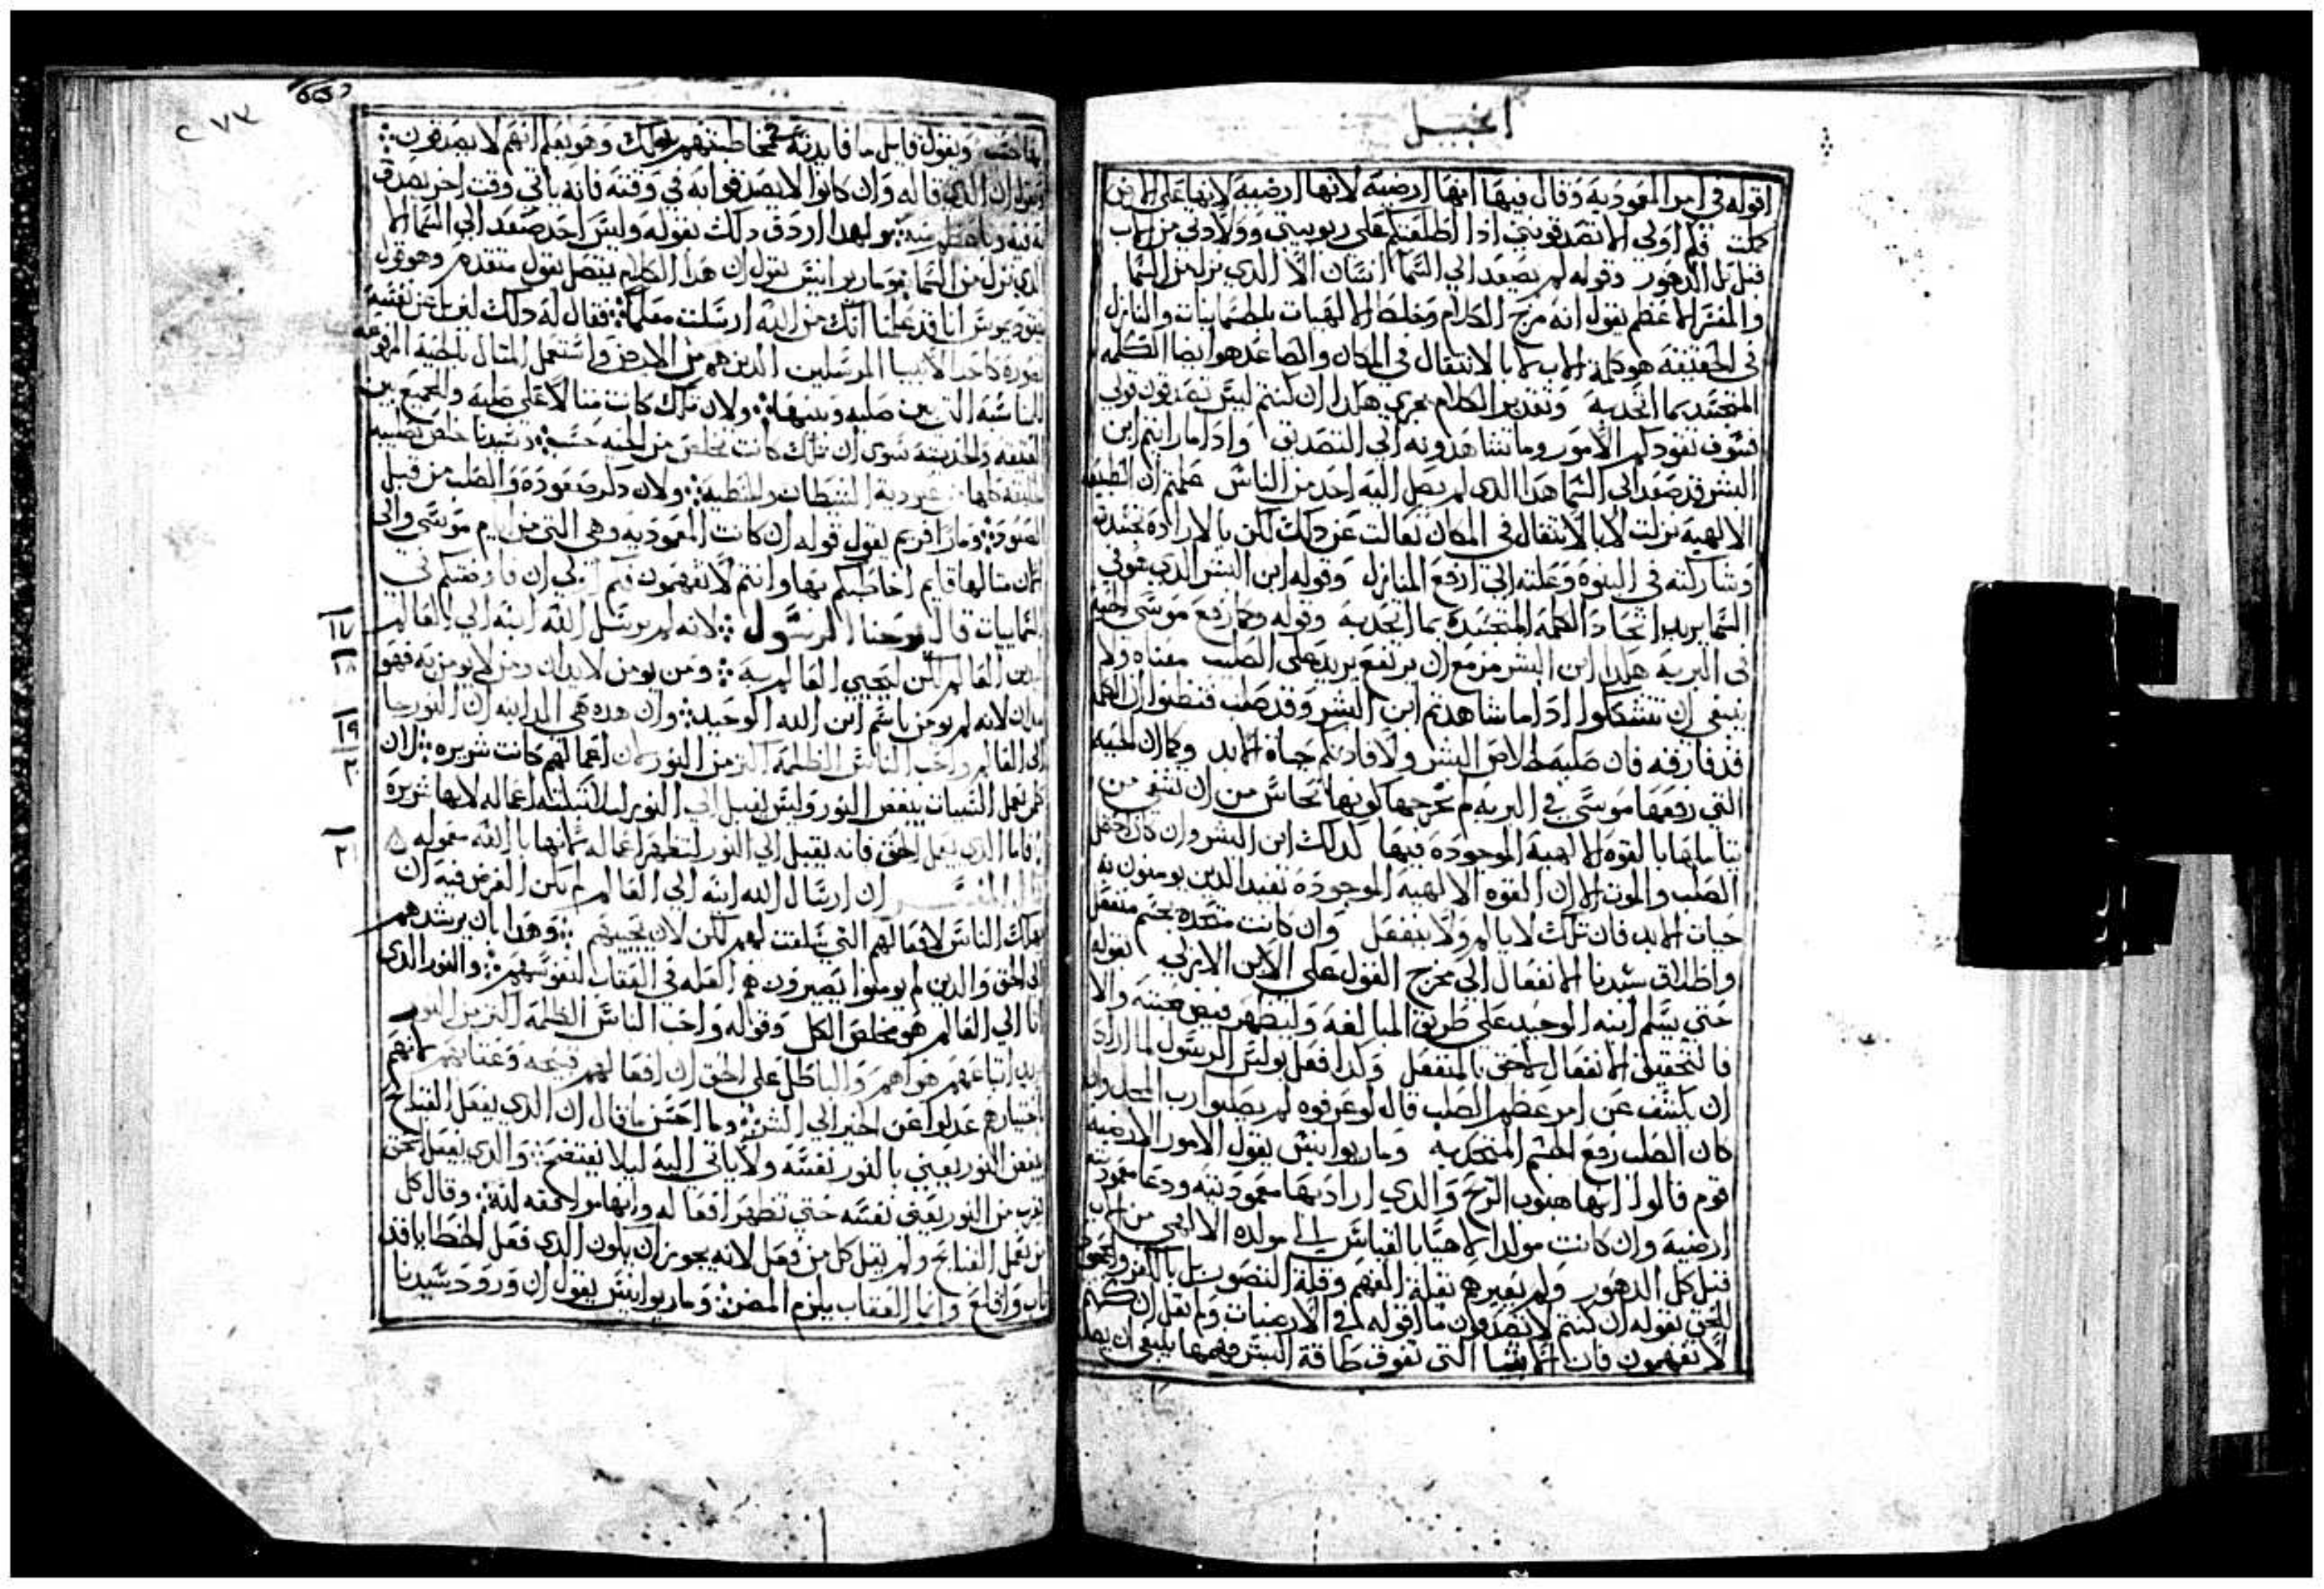 انجيل
اقوله في امر المعوديه وقال فيها انها ارضيه لانها ارضيه لانها على الارض
كملت فكم اولى الا تصدقونني ادا اطلعتكم على ربوبيتي وولادتي من الاب
قبل كل الدهور وقوله لم يصعد الي السما انسان الا الدي نزل من السما
والمفسر الاعظم يقول انه مزج الكلام وخلط الالاهيات بالجسمانيات والنازل
في الحقيقه هو كلمة الاب لا بالانتقال في المكان والصاعد هو ايضا الكلمه
المتجسد بما اتحد به وتقدير الكلام يجري هكدا ان كنتم ليس تصدقون قولي
فسوف تقودكم الامور وما تشاهدونه الي التصديق وادا ما رايتم ابن
البشر قد صعد الي السما هدا الدي لم يصل اليه احد من الناس علمتم ان الطبيعه
الالهيه نزلت لا بالانتقال في المكان تعالت عن دلك لكن بالاراده
وشاركته في البنوه وعلته الي ارفع المنازل وقوله ابن البشر الدي هو في
السما يريد اتحاد الكلمه المتجسده بما اتحد به وقوله وكما رفع موسى الحيه
في البريه هكدا ابن البشر مزمع ان يرتفع يريد على الصليب معناه ولا
ينبغي ان تتشككوا ادا ما شاهدتم ابن البشر وقد صلب فتظنوا ان الكلمه
قد فارقه فان صلبه لخلاص البشر ولافادتكم حياة الابد وكما ان الحيه
التي رفعها موسى في البريه لم يخرجها كونها نحاس من ان تشفي من
يتاملها بالقوه الالهيه الموجوده فيها كدلك ابن البشر وان كان
الصلب والموت الا ان القوه الالهيه الموجوده تفيد الدين يومنون به
حيات الابد فان تلك لا يالم ولا ينفعل وان كانت متحده بجسم منفعل
واطلاق سيدنا الانفعال الي مخرج القول على الابن الازلي بقوله
حتي يسلم ابنه الوحيد على طريق المبالغه وليظهر فيض
فالتحقيق الانفعال لاحق بالمنفعل وكدا فعل بولس الرسول لما اراد
ان يكشف عن امر عظم الصلب قال لو عرفوه لم يصلبوا رب المجد وان
كان الصلب رفع الجسم المتحد به ومار يوانيس يقول الامور الارضيه
قوم قالوا انها هبوب الريح والدي اراد بها معموديته ودعا معموديته
ارضيه وان كانت مولدا الاحيا بالقياس الي مولده الالاهي من الاب
قبل كل الدهور ولم يعيرهم بقلة الفهم وقلة التصور بل بالكفر
للحق بقوله ان كنتم لا تصدقون ما اقوله لكم في الارضيات ولم يقل انكم
لا تفهمون فان الاشيا التي تفوق طاقة البشر فهمها ينبغي ان
٢٧٣
ويقول قايل ما فايدته في مخاطبتهم بدلك وهو يعلم انهم لا يصدقون
ان الدي قاله وان كانوا لا يصدقوا به في وقته فانه ياتي وقت اخر يصدق
ولهدا اردف دلك بقوله وليس احد صعد الي السما الا
الدي نزل من السما ومار يوانيس يقول ان هدا الكلام يتصل بقول متقدم وهو قول
نيقوديموس انا قد علمنا انك من الله ارسلت معلما فقال له دلك ليس عن نفسه
كاحد الانبيا المرسلين الدين هم من الارض واستعمل المثال بالحيه المرفوعه
التي بين صلبه وبينها ولان تلك كانت مثالا على صلبه والجميع بين
العتيقه والحديثه سوى ان تلك كانت تخلص من الحيه حسب وسيدنا خلص بصلبه
من عبودية الشيطان والخطيه ولان دكر صعوده والصلب من قبل
ومار افريم يقول قوله ان كانت المعموديه وهي التي من ايام موسى والي
الان مثالها قايم اخاطبكم بها وانتم لا تفهمون فكم اولى ان فاوضتكم في
السماييات قال يوحنا الرسول لانه لم يرسل الله ابنه الي العالم
١٧
ليدين العالم لكن ليحيي العالم به ومن يومن لا يدان ومن لا يومن به فهو
١٨
مدان لانه لم يومن باسم ابن الله الوحيد وان هده هي الداينه ان النور جا
١٩
الي العالم واحب الناس الظلمه اكثر من النور لان اعمالهم كانت شريره لان
٢٠
كل من يعمل السيات يبغض النور وليس يقبل الي النور ليلا تبكته اعماله لانها شريره
فاما الدي يعمل الحق فانه يقبل الي النور لتظهر اعماله لانها بالله معموله
٢١
قال المفسر ان ارسال الله ابنه الي العالم لم يكن الغرض فيه ان
يهلك الناس لافعالهم التي سلفت لهم لكن لان يحييهم وهدا بان يرشدهم
الى الحق والدين لم يومنوا يصيرون هم العله في العقاب لنفوسهم والنور الدي
اتا الي العالم هو مخلص الكل وقوله واحب الناس الظلمه اكثر من النور
يريد اتباعهم هواهم والباطل على الحق ان افعالهم قبيحه لانهم
باختيارهم عدلوا عن الخير الي الشر وما احسن ما قال ان الدي يفعل القبايح
يبغض النور يعني بالنور نفسه ولا ياتي اليه ليلا يفتضح والدي يفعل الحق
يقرب من النور يعني نفسه حتي تظهر افعاله وانها موافقه لله وقال كل
من يعمل القبايح ولم يقل كل من فعل لانه يجوز ان يكون الدي فعل الخطايا قد
تاب واقلع وانما العقاب يلزم المصر ومار يوانيس يقول ان ورود سيدنا